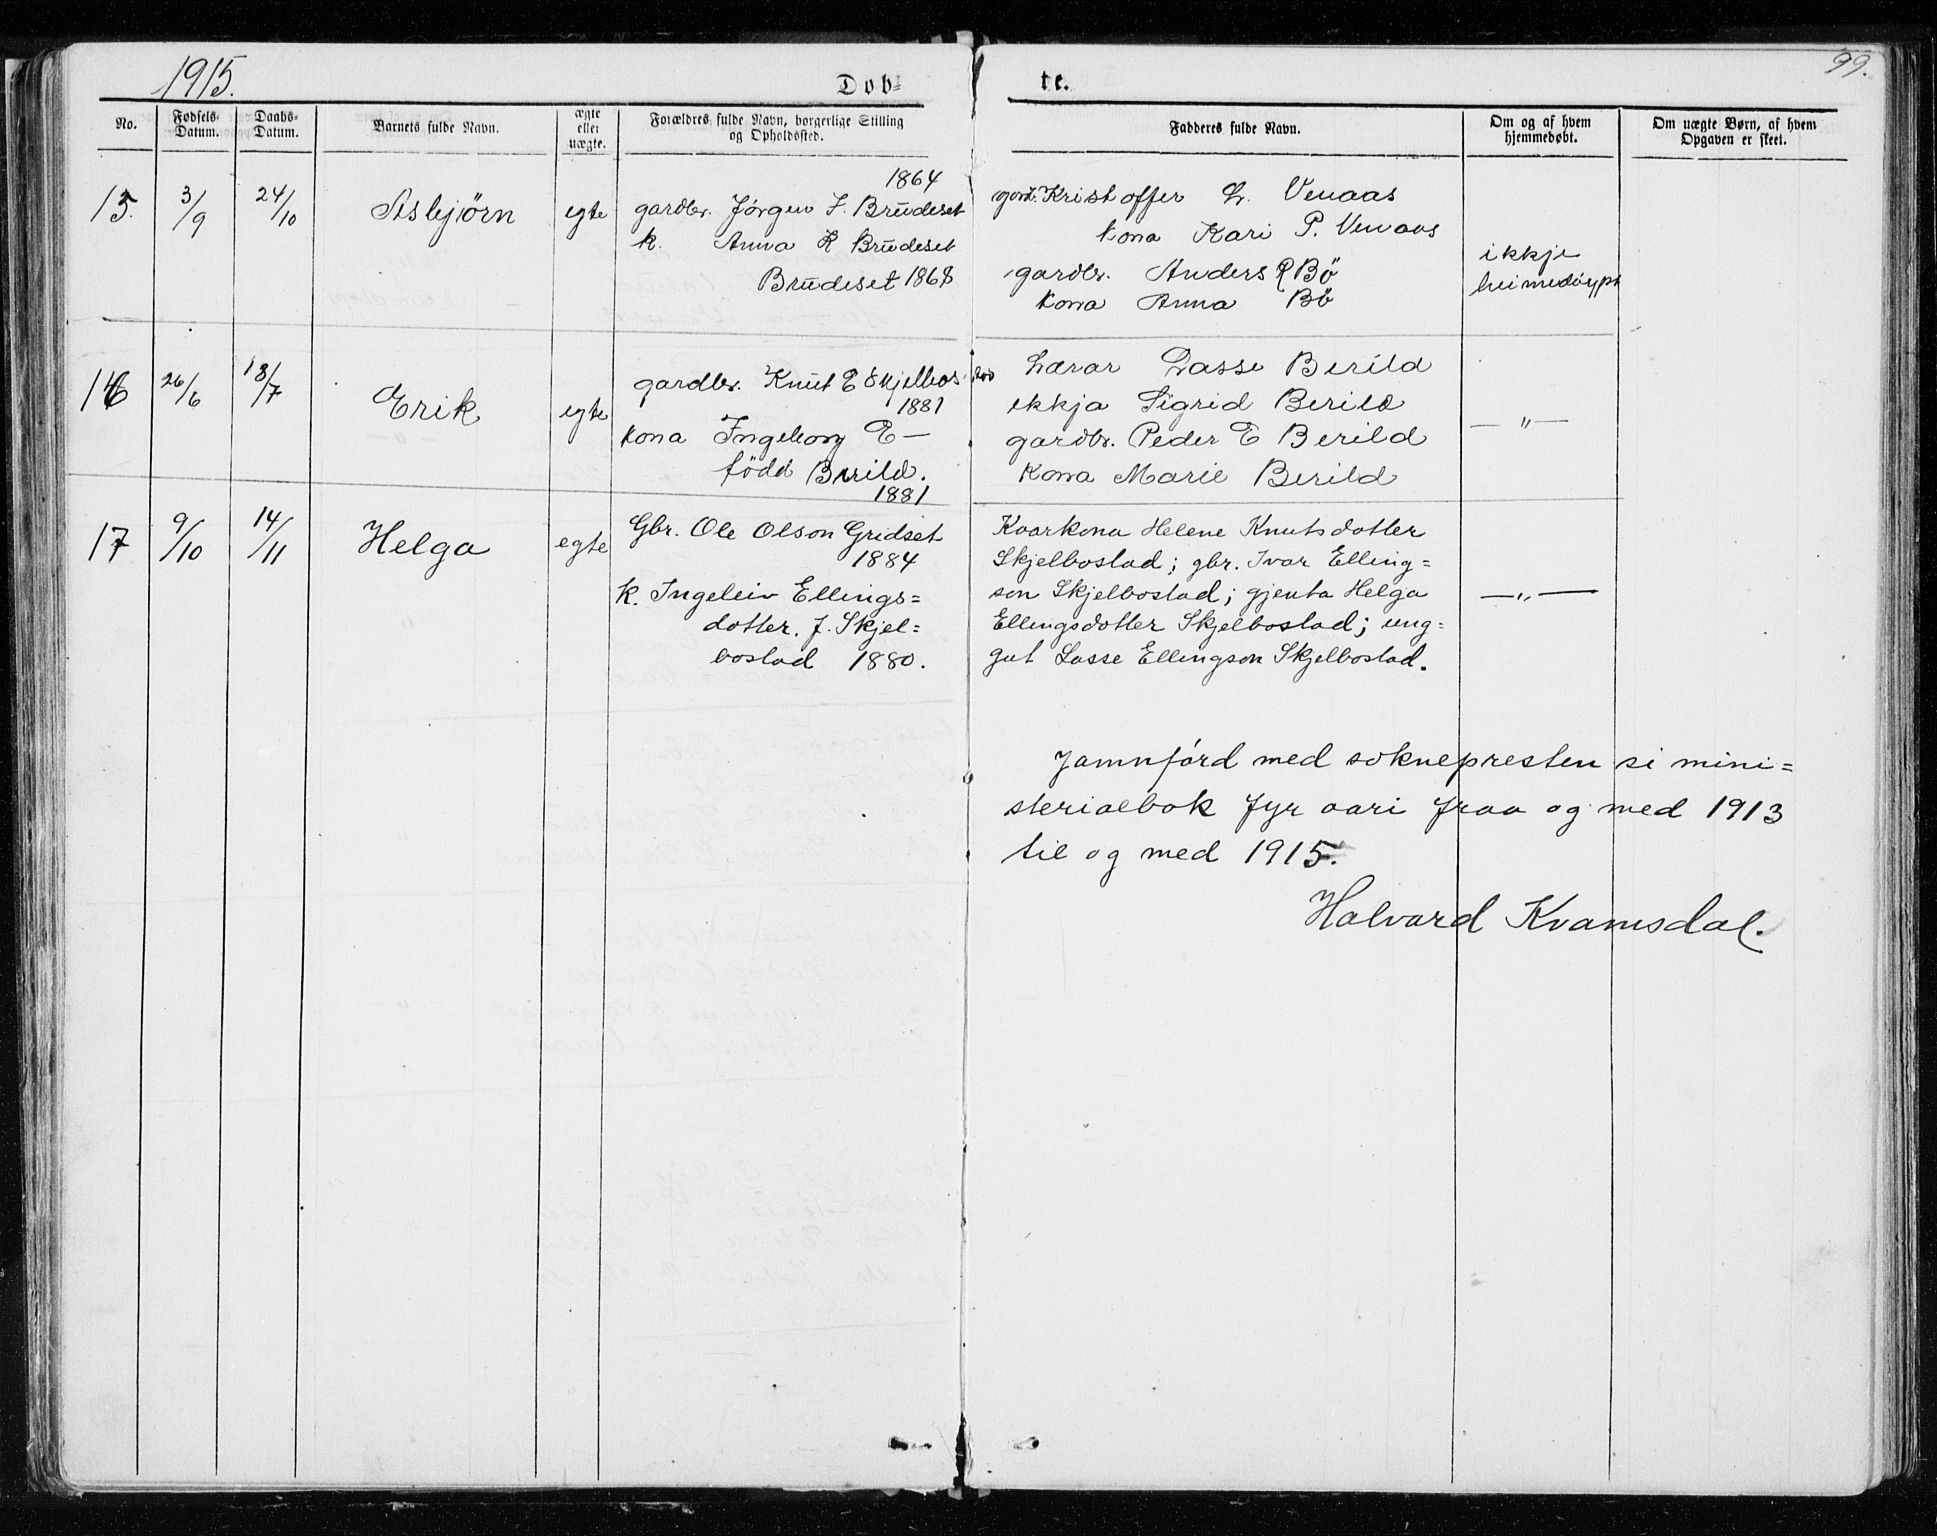 1915.
Døb-
te.
99.
No.
Fødsels-
Datum.
Daabs-
Datum.
Barnets fulde Navn.
ægte
eller
uægte.
Forældres fulde Navn, borgerlige Stilling
og Opholdssted.
Fadderes fulde Navn.
Om og af hvem
hjemmedøbt.
Om uægte Børn, af hvem
Opgaven er skeet.
15.
3/9
24/10
Asbjörn
egte
1864
gardbr. Jørgen J. Brudeset
k. Anna K Brudeset
Brudeset 1868
Kristoffer L. Venaas
kona Kari P. Venaas
gardbr. Anders R Bö
kona Anna Bö
ikkje
heimedöypt
16
26/6
18/7
Erik
egte
gardbr. Knut E Skjelbos-tad
1881
kona Ingeborg E —
född Berild.
1881
Lærar Lasse Berild
ekkja Sigrid Berild
gardbr. Peder E Berild
Kona Marie Berild
— " —
17
9/10
14/11
Helga
egte
Gbr. Ole Olson Gridset
1884
k. Ingeleiv Ellings=
dotter. f. Skjel=
bostad 1880.
Kaarkona Helene Knutsdotter
Skjelbostad; gbr. Ivar Elling=
son Skjelbostad; gjenta Helga
Ellingsdotter Skjelbostad; ung=
gut Lasse Ellingson Skjelbostad.
— " —
Jamnförd med soknepresten si mini=
sterialbok fyr aari fraa og med 1913
til og med 1915.
Halvard Kvamsdal.